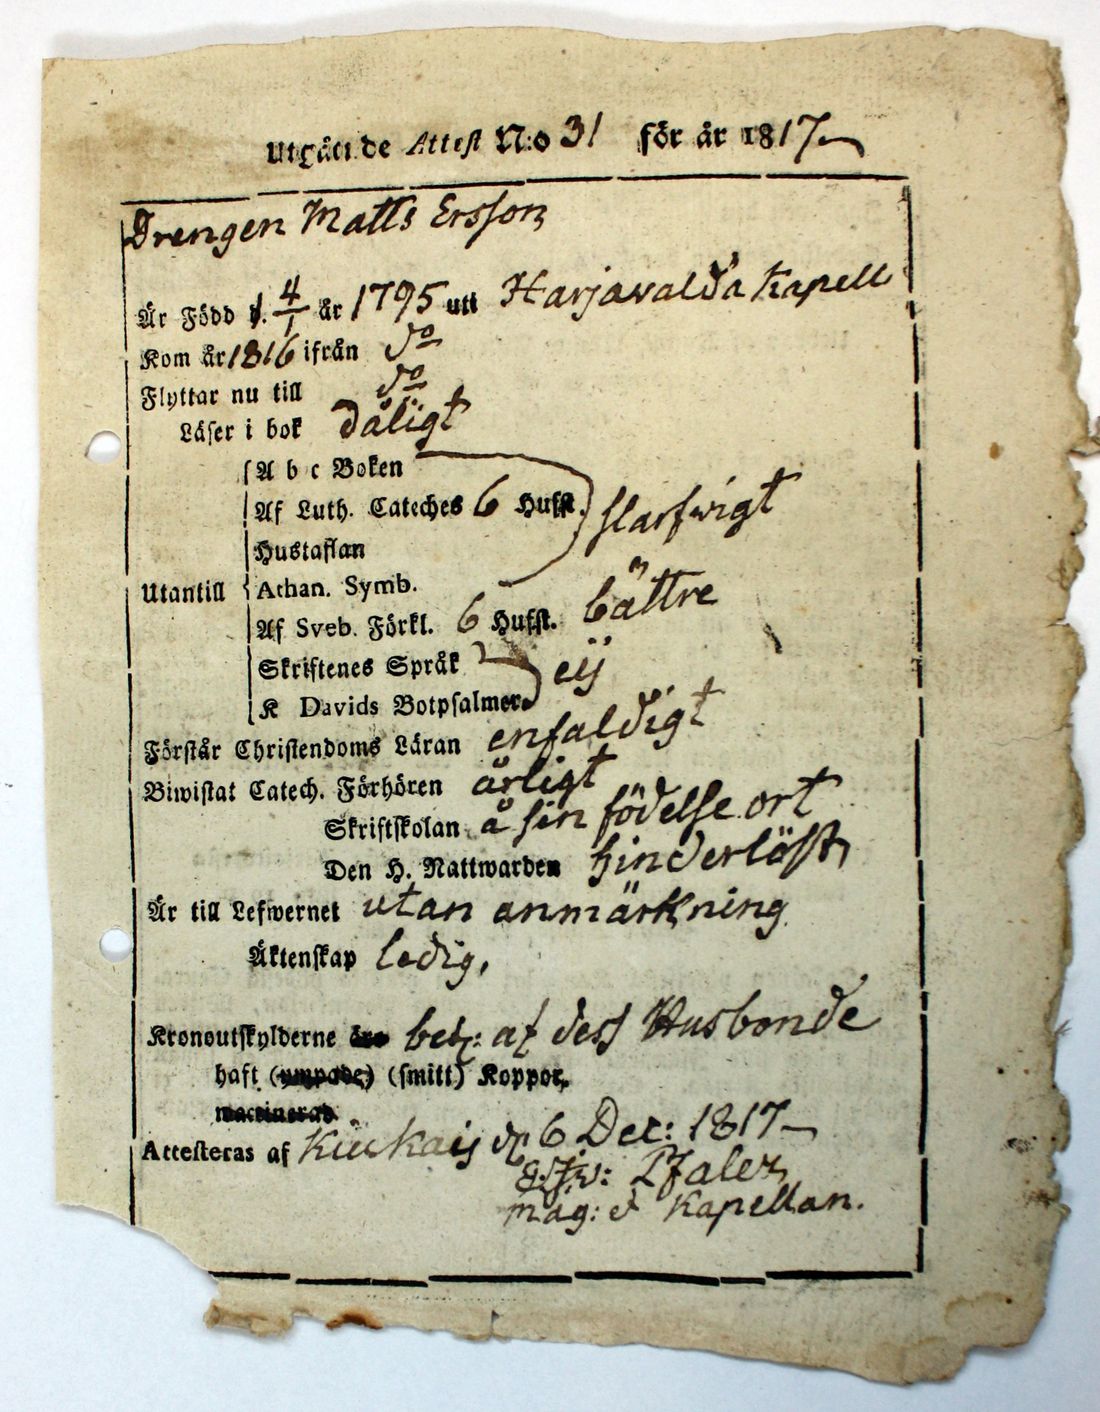 Utgående Attest N:o 31 för år 1817
Drengen Matts Ersson
Är Född d. 4/1 år 1795 uti Harjavalda Kapell
Kom år 1816 ifrån do
Flyttar nu till do
Läser i bok dåligt
A b c Boken
Af Luth. Cateches 6 Hufst. slarfwigt
Hustaflan
Utantill Athan. Symb.
Af Sveb. Förkl. 6 Hufst. bättre
Skriftenes Språk eij
K Davids Botpsalmer
Förstår Christendoms Läran enfaldigt
Biwistat Catech. Förhören årligt
Skriftskolan å sin födelse ort
Den H. Nattwarden hinderlöst
Är till Lefwernet utan anmärkning
Äktenskap ledig,
Kronoutskylderne äro bet: af dess Husbonde
haft (ympade) (smitt) Koppor,
waccinerad.
Attesteras af Kiukais d. 6 Dec: 1817
Pfaler
mag: & Kapellan.